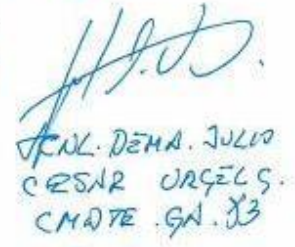 TCNL. DEMA. JULIO
CESAR URGEL G.
CMDTE. GA. 33